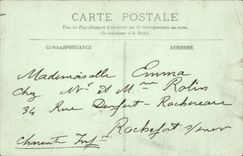 CARTE POSTALE
Tous les Pays étrangers n'acceptent pas la Correspondance au recto.
(Se renseigner à la Poste)
CORRESPONDANCE ADRESSE
Mademoiselle Emma
chez Mr et Mme Rolin
34 Rue Denfert-Rochereau
Rochefort s/mer
Charente Infre